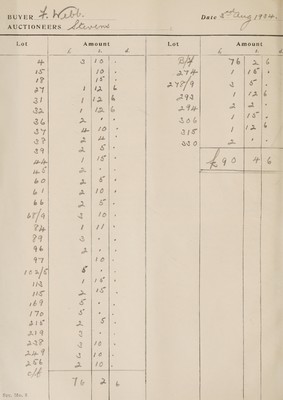 BUYER F. Webb. Date 5rd Aug 1934
AUCTIONEERS Stevens
Lot Amount
£ s. d.
4 3 10 .
15 10 .
18 15 .
27 1 12 6
31 1 12 6
32 1 12 6
36 2 . .
37 4 10 .
38 2 4 .
39 2 5 .
44 1 15 .
45 2 . .
60 2 5 .
61 2 10 .
66 2 5 .
68/9 3 10 .
84 1 11 .
89 3 . .
96 2 . .
97 10 .
102/5 5 . .
113 1 15 .
115 2 15 .
169 5 . .
170 5 . .
215 2 5 .
219 3 . .
238 3 10 .
249 3 10 .
256 2 10 .
c/f 76 2 6
Lot Amount
£ s. d.
B/f 76 2 6
274 1 15 .
278/9 3 5 .
293 1 12 6
294 2 2 .
306 1 15 .
315 1 12 6
330 2 . .
£ 90 4 6